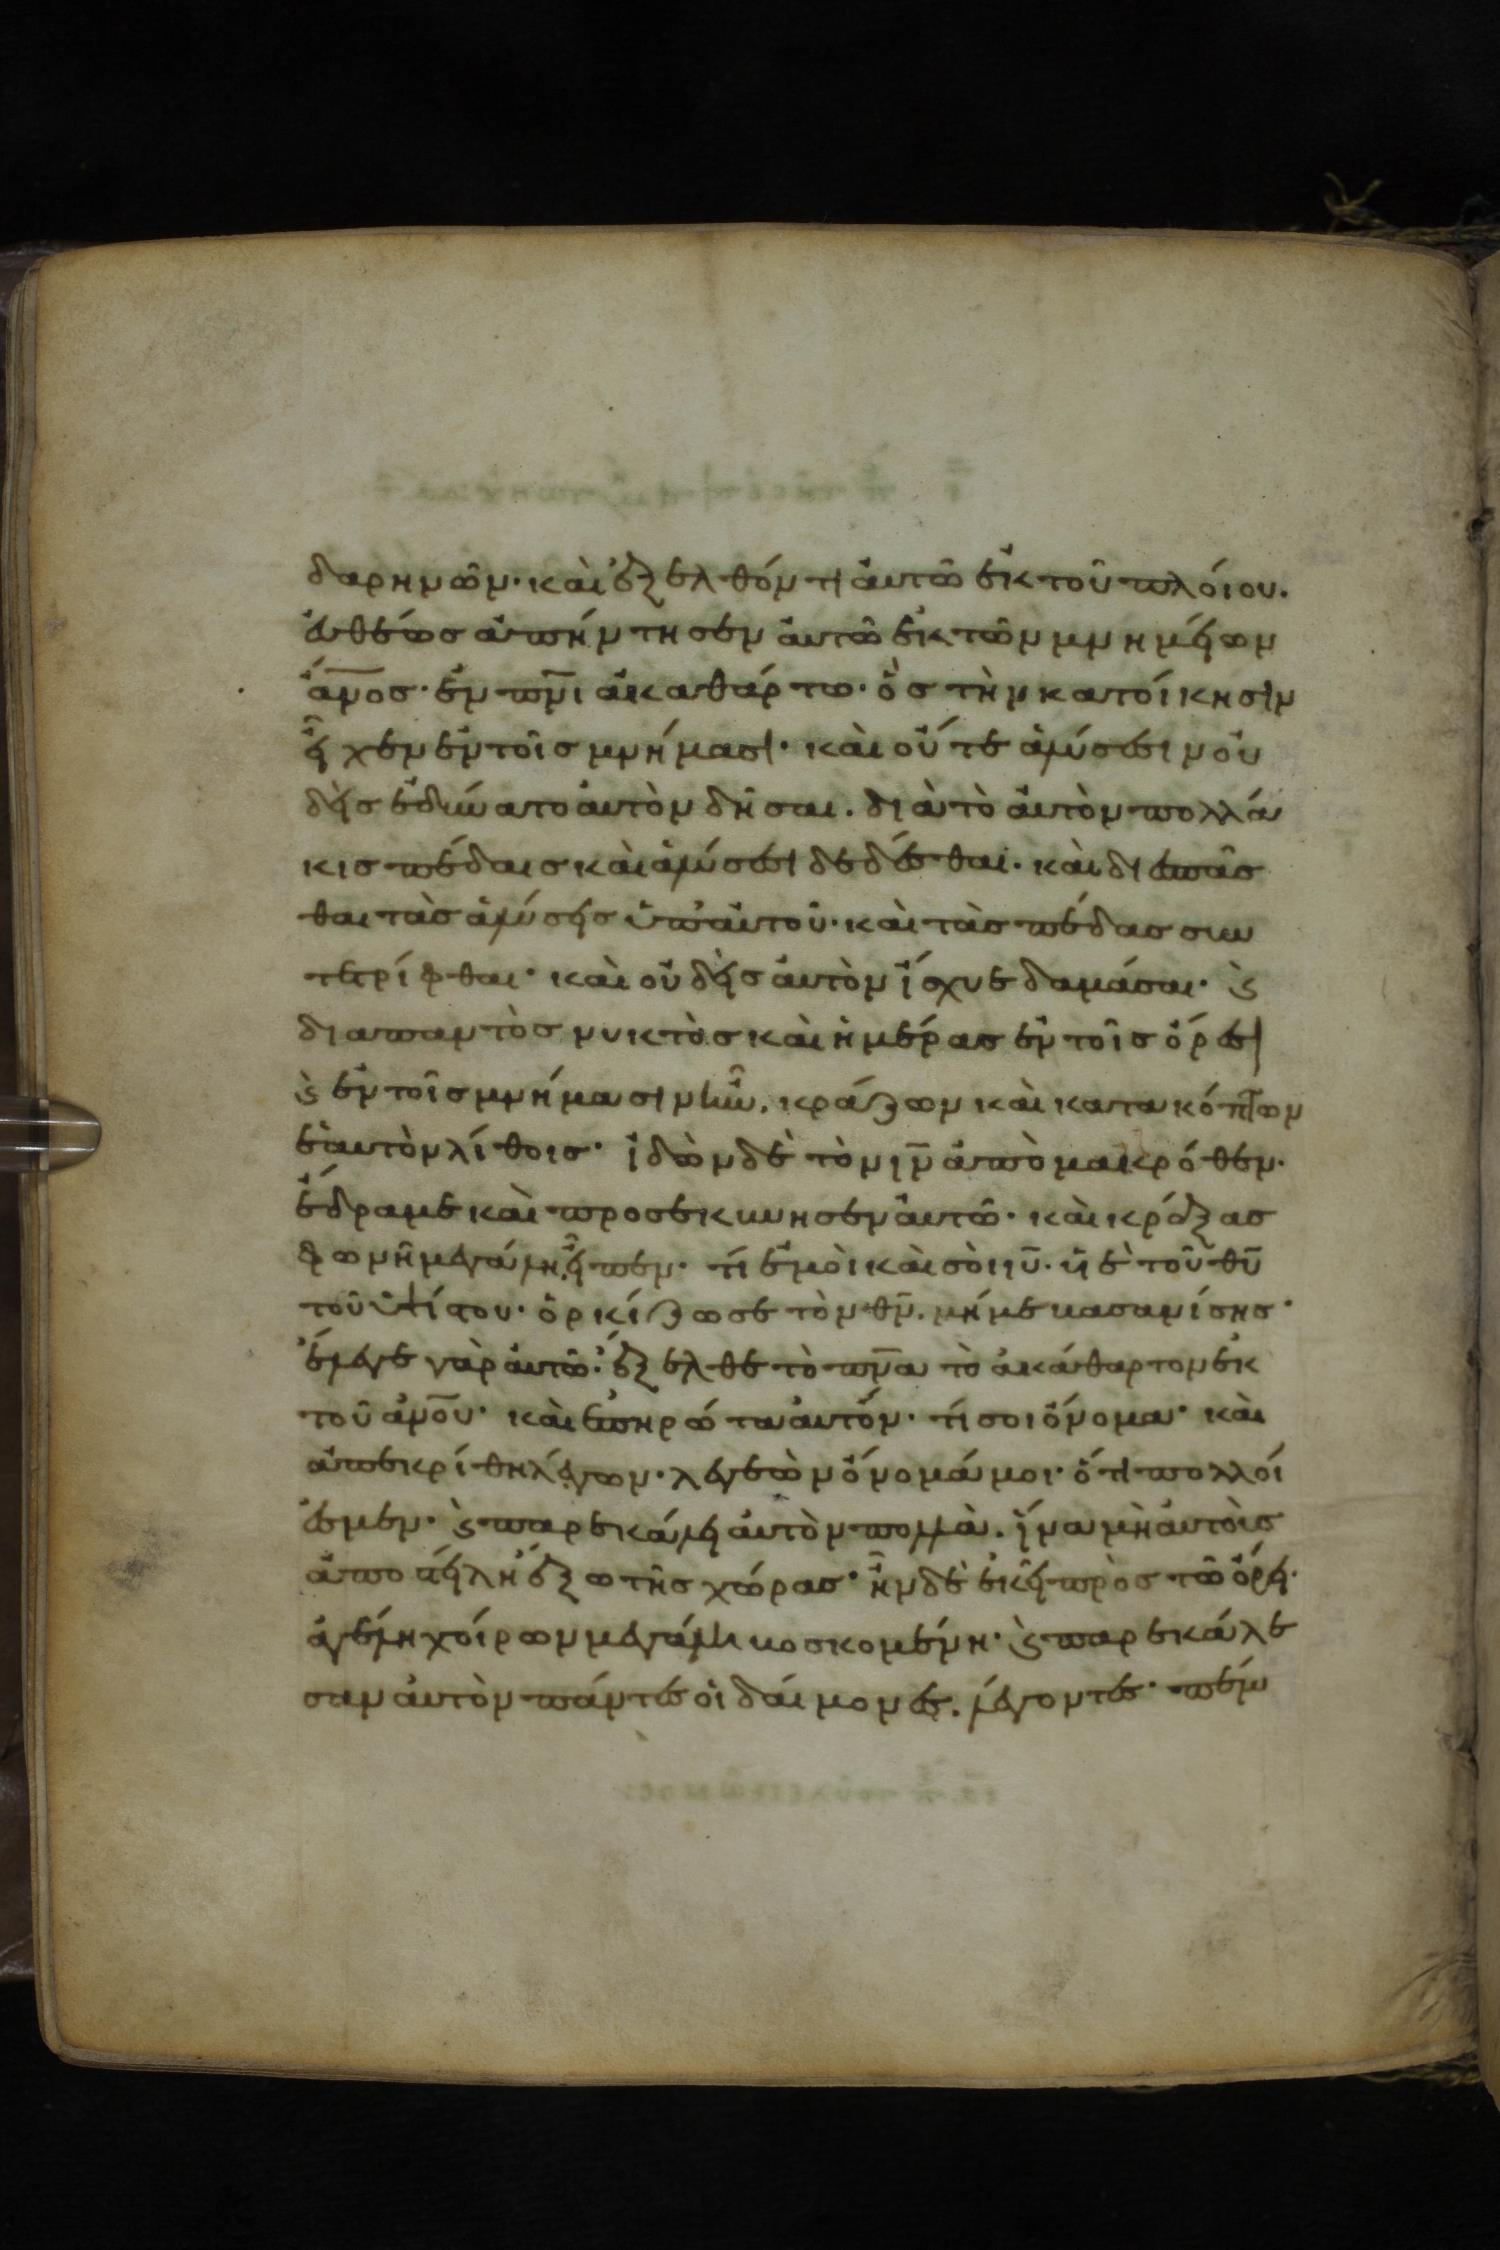 δαρηνῶν· καὶ ἐξελθόντι αὐτῶ ἐκ τοῦ πλοίου.
εὐθέως ἀπήντησεν αὐτῶ ἐκ τῶν μνημείων
ἄνος· ἐν πνι ἀκαθάρτω· ὃς τὴν κατοίκησιν
εἶχεν ἐν τοῖς μνήμασι· καὶ οὔτε ἁλύσεσιν οὐ
δεὶς ἐδύνατο αὐτὸν δῆσαι. διὰ τὸ αὐτὸν πολλά
κις πέδαις καὶ ἁλύσεσι δεδέσθαι. καὶ διεσπᾶσ
θαι τὰς ἁλύσεις ὑπ' αὐτοῦ· καὶ τὰς πέδας συν
τετρίφθαι· καὶ οὐδεὶς αὐτὸν ἴσχυε δαμάσαι· ϗ
διαπαντὸς νυκτὸς καὶ ἡμέρας ἐν τοῖς ὄρεσι
ϗ ἐν τοῖς μνήμασιν ἦν. κράζων καὶ κατακόπτων
ἑαυτὸν λίθοις· ἰδὼν δὲ τὸν ιν ἀπὸ μακρόθεν.
ἔδραμε καὶ προσεκύνησεν αὐτῶ· καὶ κράξας
φωνῆ μεγάλη. εἶπεν· τί ἐμοὶ καὶ σοὶ ιυ· υἱὲ τοῦ θυ
τοῦ ὑψίστου· ὁρκίζω σε τὸν θν. μή με βασανίσης·
ἔλεγε γὰρ αὐτῶ· ἔξελθε τὸ πνα τὸ ἀκάθαρτον ἐκ
τοῦ ἀνου· καὶ ἐπηρώτα αὐτόν· τί σοι ὄνομα· καὶ
ἀπεκρίθη λέγων· λεγεὼν ὄνομά μοι· ὅτι πολλοί
ἐσμεν· ϗ παρεκάλει αὐτὸν πολλὰ. ἵνα μὴ αὐτοὺς
ἀποστείλη ἔξω τῆς χώρας· ἦν δὲ ἐκεῖ πρὸς τῶ ὄρει·
ἀγέλη χοίρων μεγάλη βοσκομένη· ϗ παρεκάλε
σαν αὐτὸν πάντες οἱ δαίμονες. λέγοντες· πέμ